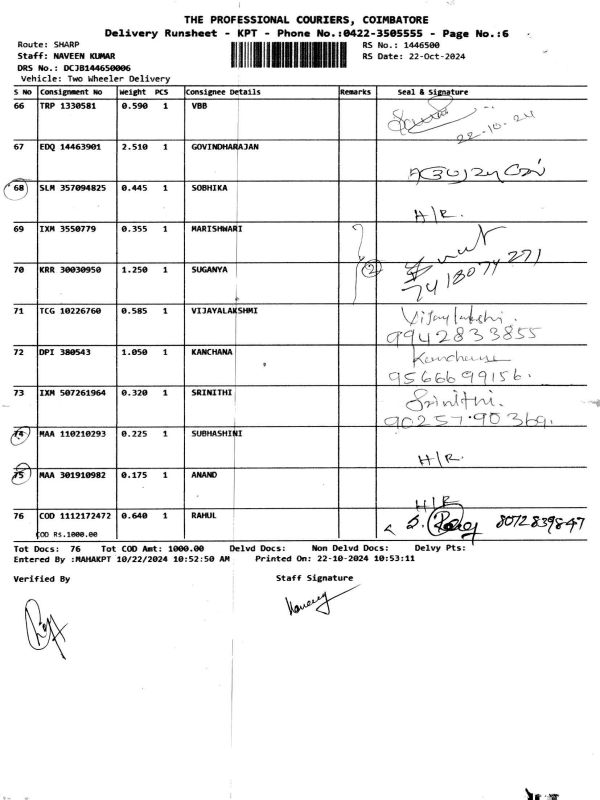 THE PROFESSIONAL COURIERS, COIMBATORE
Delivery Runsheet - KPT - Phone No.:0422-3505555 - Page No.:6
Route: SHARP RS No.: 1446500
Staff: NAVEEN KUMAR RS Date: 22-Oct-2024
DRS No.: DCJB144650006
Vehicle: Two Wheeler Delivery
S No Consignment No Weight PCS Consignee Details Remarks Seal & Signature
66 TRP 1330581 0.590 1 VBB
22-10-24
67 EDQ 14463901 2.510 1 GOVINDHARAJAN
68 SLM 357094825 0.445 1 SOBHIKA
H/R.
69 IXM 3550779 0.355 1 MARISHWARI
70 KRR 30030950 1.250 1 SUGANYA 2
7418074271
71 TCG 10226760 0.585 1 VIJAYALAKSHMI Vijaylakshi.
9942833855
72 DPI 380543 1.050 1 KANCHANA Kanchana
9566699156.
73 IXM 507261964 0.320 1 SRINITHI Srinithi.
90257.90369.
74 MAA 110210293 0.225 1 SUBHASHINI
H/R.
75 MAA 301910982 0.175 1 ANAND
H/R
76 COD 1112172472 0.640 1 RAHUL 8072839847
COD Rs.1000.00
Tot Docs: 76 Tot COD Amt: 1000.00 Delvd Docs: Non Delvd Docs: Delvy Pts:
Entered By :MAHAKPT 10/22/2024 10:52:50 AM Printed On: 22-10-2024 10:53:11
Verified By Staff Signature